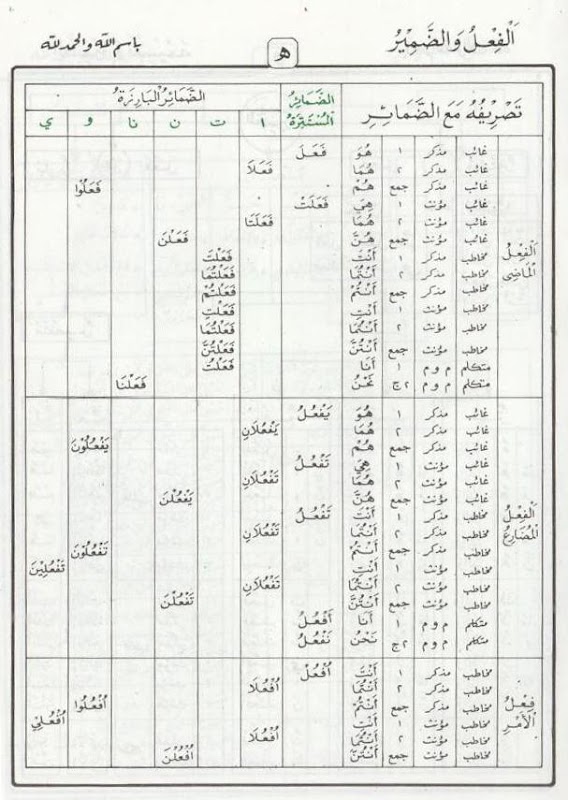 اَلْفِعْلُ وَالضَّمِيْرُ ه باسم الله والحمد لله
تَصْرِيْفُهُ مَعَ الضَّمَائِرِ الضَّمَائِرُ الْمُسْتَتِرَةُ الضَّمَائِرُ الْبَارِزَةُ
ا ت ن نا و ي
اَلْفِعْلُ الْمَاضِى
غائب مذكر ١ هُوَ فَعَلَ
غائب مذكر ٢ هُمَا فَعَلَا
غائب مذكر جمع هُمْ فَعَلُوْا
غائب مؤنث ١ هِيَ فَعَلَتْ
غائب مؤنث ٢ هُمَا فَعَلَتَا
غائب مؤنث جمع هُنَّ فَعَلْنَ
مخاطب مذكر ١ أَنْتَ فَعَلْتَ
مخاطب مذكر ٢ أَنْتُمَا فَعَلْتُمَا
مخاطب مذكر جمع أَنْتُمْ فَعَلْتُمْ
مخاطب مؤنث ١ أَنْتِ فَعَلْتِ
مخاطب مؤنث ٢ أَنْتُمَا فَعَلْتُمَا
مخاطب مؤنث جمع أَنْتُنَّ فَعَلْتُنَّ
متكلم م و م ١ أَنَا فَعَلْتُ
متكلم م و م ٢ج نَحْنُ فَعَلْنَا
اَلْفِعْلُ الْمُضَارِعُ
غائب مذكر ١ هُوَ يَفْعُلُ
غائب مذكر ٢ هُمَا يَفْعُلَانِ
غائب مذكر جمع هُمْ يَفْعُلُوْنَ
غائب مؤنث ١ هِيَ تَفْعُلُ
غائب مؤنث ٢ هُمَا تَفْعُلَانِ
غائب مؤنث جمع هُنَّ يَفْعُلْنَ
مخاطب مذكر ١ أَنْتَ تَفْعُلُ
مخاطب مذكر ٢ أَنْتُمَا تَفْعُلَانِ
مخاطب مذكر جمع أَنْتُمْ تَفْعُلُوْنَ
مخاطب مؤنث ١ أَنْتِ تَفْعُلِيْنَ
مخاطب مؤنث ٢ أَنْتُمَا تَفْعُلَانِ
مخاطب مؤنث جمع أَنْتُنَّ تَفْعُلْنَ
متكلم م و م ١ أَنَا أَفْعُلُ
متكلم م و م ٢ج نَحْنُ نَفْعُلُ
فِعْلُ الْأَمْرِ
مخاطب مذكر ١ أَنْتَ اُفْعُلْ
مخاطب مذكر ٢ أَنْتُمَا اُفْعُلَا
مخاطب مذكر جمع أَنْتُمْ اُفْعُلُوا
مخاطب مؤنث ١ أَنْتِ اُفْعُلِيْ
مخاطب مؤنث ٢ أَنْتُمَا اُفْعُلَا
مخاطب مؤنث جمع أَنْتُنَّ اُفْعُلْنَ